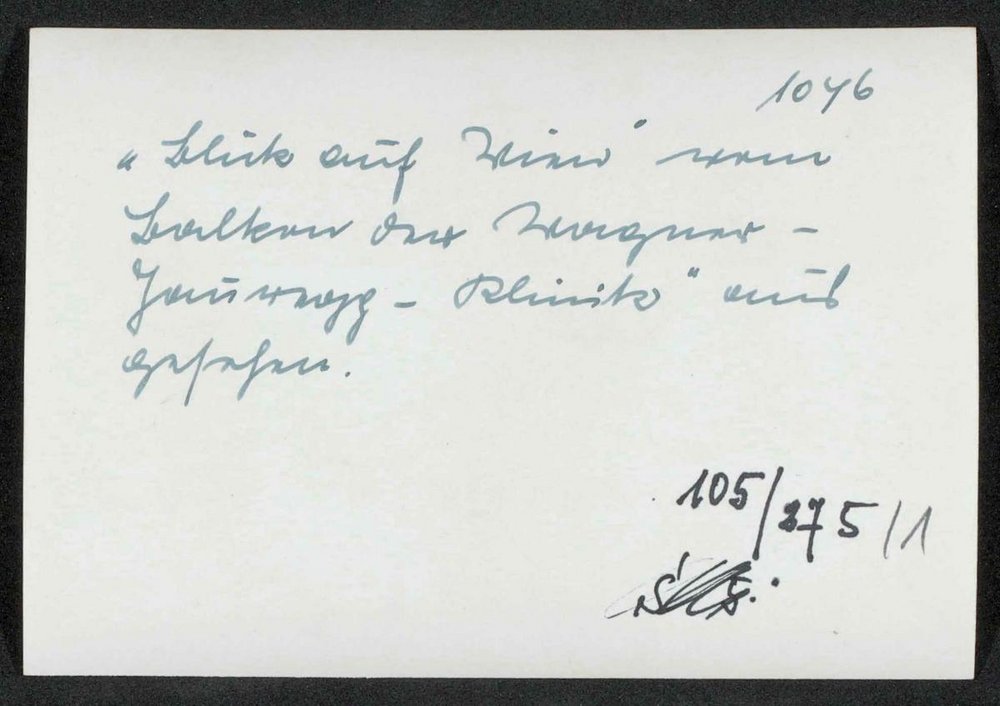 1046
"Blick auf Wien" vom
Balkon der Wagner-
Jauregg-Klinik" aus
gesehen.
105/275/1